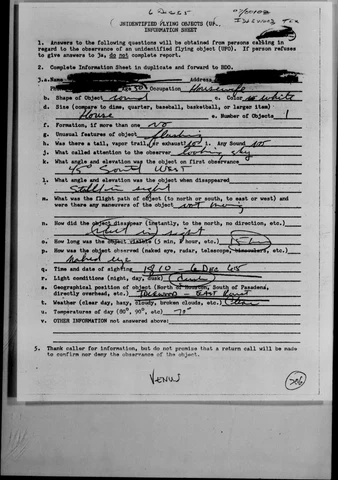 6 Dec 65
UNIDENTIFIED FLYING OBJECTS (UFO)
INFORMATION SHEET
1. Answers to the following questions will be obtained from persons calling in
regard to the observance of an unidentified flying object (UFO). If person refuses
to give answers to 3a, do not complete report.
2. Complete Information Sheet in duplicate and forward to BDO.
3.a. Name Address
Phone Age 50 Occupation Housewife
b. Shape of Object round c. Color white
d. Size (compare to dime, quarter, baseball, basketball, or larger item)
House e. Number of Objects 1
f. Formation, if more than one No
g. Unusual features of object flashing
h. Was there a tail, vapor trail, or exhaust no i. Any Sound no
j. What called attention to the observer looking sky
k. What angle and elevation was the object on first observance
45° South West
l. What angle and elevation was the object when disappeared
Still in sight
m. What was the flight path of object (to north or south, to east or west) and
were there any maneuvers of the object not moving
n. How did the object disappear (instantly, to the north, no direction, etc.)
still in sight
o. How long was the object visible (5 min, 1 hour, etc.)
p. How was the object observed (naked eye, radar, telescope, binoculars, etc.)
naked eye
q. Time and date of sighting 1910 - 6 Dec 65
r. Light conditions (night, day, dusk)
s. Geographical position of object (North of Houston, South of Pasadena,
directly overhead, etc.)
t. Weather (clear day, hazy, cloudy, broken clouds, etc.) Clear
u. Temperatures of day (80°, 90°, etc) 70°
v. OTHER INFORMATION not answered above:
5. Thank caller for information, but do not promise that a return call will be made
to confirm nor deny the observance of the object.
VENUS